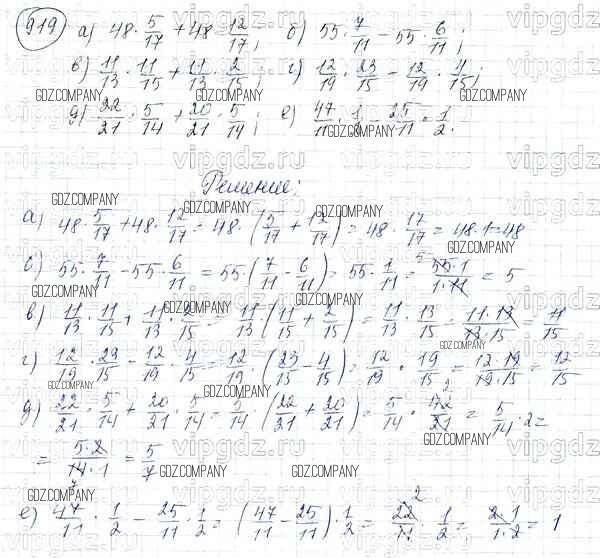 919 а) 48 · 5/17 + 48 · 12/17; б) 55 · 7/11 − 55 · 6/11;
в) 11/13 · 11/15 + 11/13 · 2/15; г) 12/19 · 23/15 − 12/19 · 4/15;
д) 22/21 · 5/14 + 20/21 · 5/14; е) 47/11 · 1/2 − 25/11 · 1/2.
Решение:
а) 48 · 5/17 + 48 · 12/17 = 48 · (5/17 + 12/17) = 48 · 17/17 = 48 · 1 = 48
б) 55 · 7/11 − 55 · 6/11 = 55 · (7/11 − 6/11) = 55 · 1/11 = 55 · 1/1 · 11 = 5
в) 11/13 · 11/15 + 11/13 · 2/15 = 11/13 · (11/15 + 2/15) = 11/13 · 13/15 = 11 · 13/13 · 15 = 11/15
г) 12/19 · 23/15 − 12/19 · 4/15 = 12/19 · (23/15 − 4/15) = 12/19 · 19/15 = 12 · 19/19 · 15 = 12/15
д) 22/21 · 5/14 + 20/21 · 5/14 = 5/14 · (22/21 + 20/21) = 5/14 · 42/21 = 5/14 · 2 =
= 5 · 2/14 · 1 = 5/7
е) 47/11 · 1/2 − 25/11 · 1/2 = (47/11 − 25/11) · 1/2 = 22/11 · 1/2 = 2 · 1/1 · 2 = 1
GDZ.COMPANY
vipgdz.ru